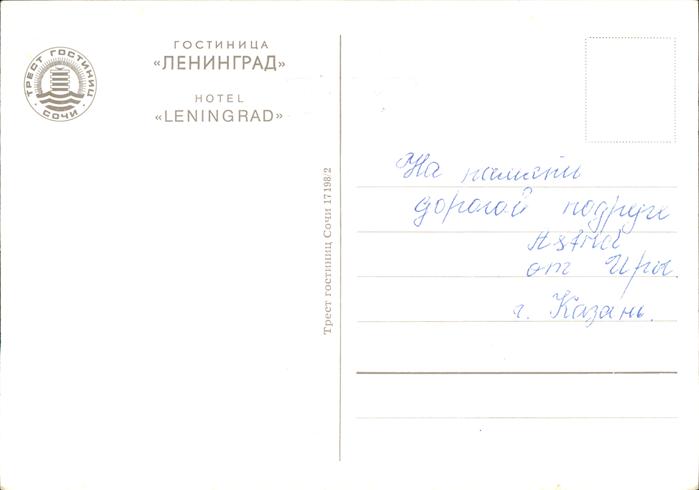 ТРЕСТ ГОСТИНИЦ
· СОЧИ ·
ГОСТИНИЦА
«ЛЕНИНГРАД»
HOTEL
«LENINGRAD»
Трест гостиниц Сочи 17198/2
На памяти
дорогой подруге
Astrid
от Иры.
г. Казань.